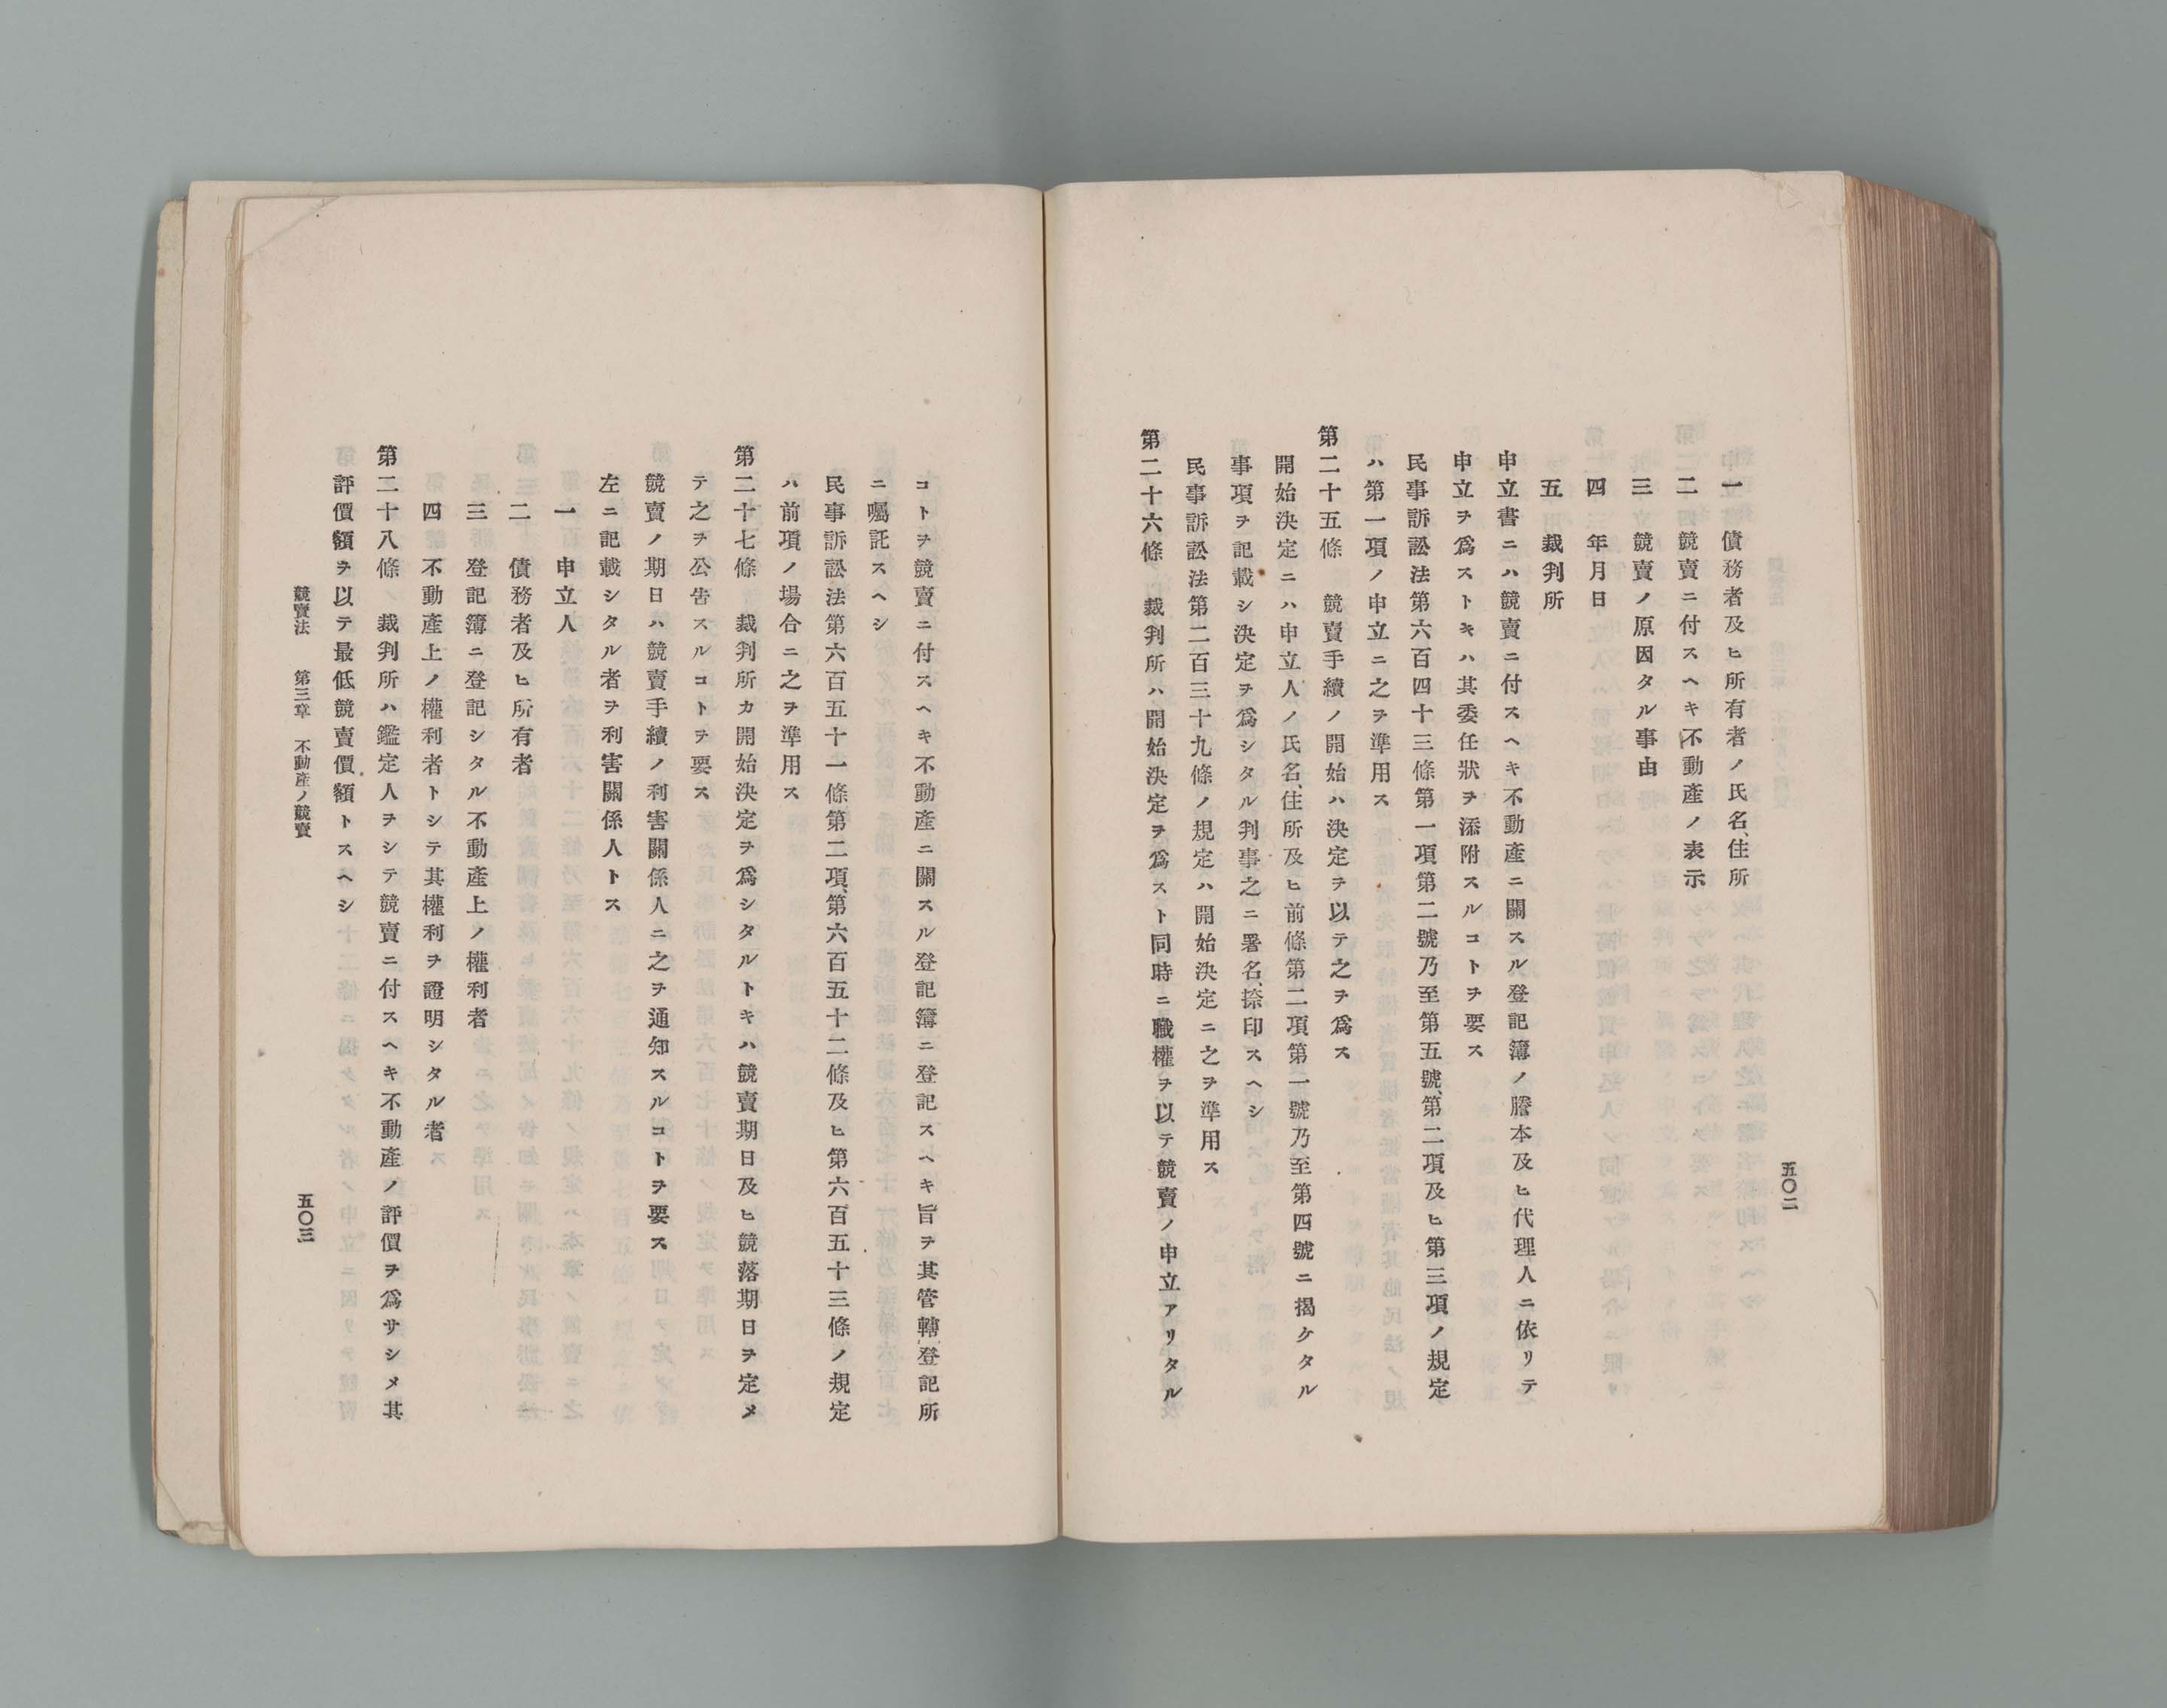 五〇二
一　債務者及ヒ所有者ノ氏名、住所
二　競賣ニ付スヘキ不動產ノ表示
三　競賣ノ原因タル事由
四　年月日
五　裁判所
申立書ニハ競賣ニ付スヘキ不動產ニ關スル登記簿ノ謄本及ヒ代理人ニ依リテ
申立ヲ爲ストキハ其委任狀ヲ添附スルコトヲ要ス
民事訴訟法第六百四十三條第一項第二號乃至第五號、第二項及ヒ第三項ノ規定
ハ第一項ノ申立ニ之ヲ準用ス
第二十五條　競賣手續ノ開始ハ決定ヲ以テ之ヲ爲ス
開始決定ニハ申立人ノ氏名、住所及ヒ前條第二項第一號乃至第四號ニ揭ケタル
事項ヲ記載シ決定ヲ爲シタル判事之ニ署名、捺印スヘシ
民事訴訟法第二百三十九條ノ規定ハ開始決定ニ之ヲ準用ス
第二十六條　裁判所ハ開始決定ヲ爲スト同時ニ職權ヲ以テ競賣ノ申立アリタル
コトヲ競賣ニ付スヘキ不動產ニ關スル登記簿ニ登記スヘキ旨ヲ其管轄登記所
ニ囑託スヘシ
民事訴訟法第六百五十一條第二項、第六百五十二條及ヒ第六百五十三條ノ規定
ハ前項ノ場合ニ之ヲ準用ス
第二十七條　裁判所カ開始決定ヲ爲シタルトキハ競賣期日及ヒ競落期日ヲ定メ
テ之ヲ公告スルコトヲ要ス
競賣ノ期日ハ競賣手續ノ利害關係人ニ之ヲ通知スルコトヲ要ス
左ニ記載シタル者ヲ利害關係人トス
一　申立人
二　債務者及ヒ所有者
三　登記簿ニ登記シタル不動產上ノ權利者
四　不動產上ノ權利者トシテ其權利ヲ證明シタル者
第二十八條　裁判所ハ鑑定人ヲシテ競賣ニ付スヘキ不動產ノ評價ヲ爲サシメ其
評價額ヲ以テ最低競賣價額トスヘシ
競賣法　第三章　不動產ノ競賣
五〇三